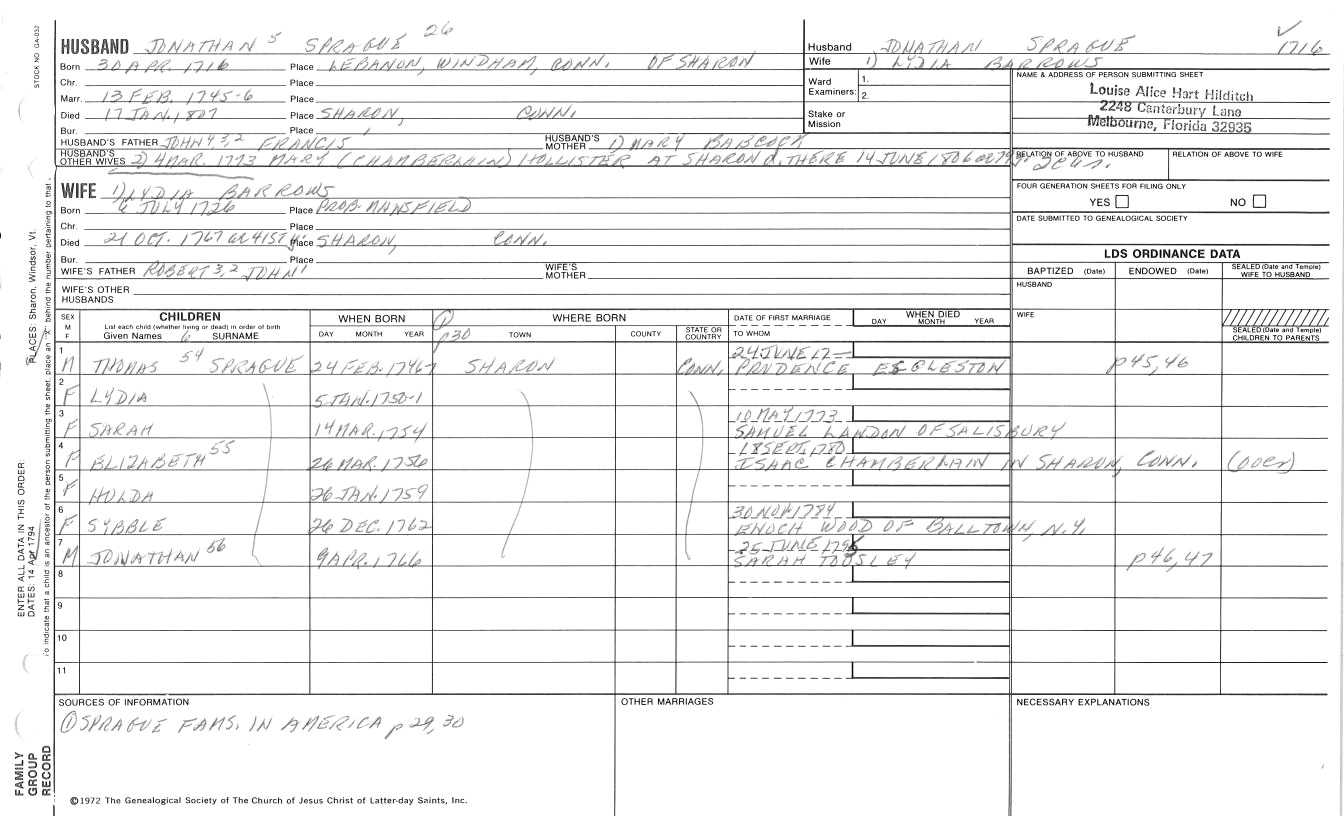 STOCK NO. GA-032
HUSBAND JONATHAN 5 SPRAGUE 26
Born 30 APR. 1716 Place LEBANON, WINDHAM, CONN. OF SHARON
Chr. Place
Marr. 13 FEB. 1745-6 Place
Died 17 JAN. 1807 Place SHARON, CONN.
Bur. Place
HUSBAND'S FATHER JOHN 4,3,2 FRANCIS 1 HUSBAND'S MOTHER 1) MARY BABCOCK
HUSBAND'S OTHER WIVES 2) 4 MAR. 1773 MARY (CHAMBERLAIN) HOLLISTER AT SHARON d. THERE 14 JUNE 1806 OR 7
Husband JONATHAN SPRAGUE 1716
Wife 1) LYDIA BARROWS
Ward Examiners: 1.
2.
Stake or Mission
NAME & ADDRESS OF PERSON SUBMITTING SHEET
Louise Alice Hart Hilditch
2248 Canterbury Lane
Melbourne, Florida 32935
RELATION OF ABOVE TO HUSBAND RELATION OF ABOVE TO WIFE
FOUR GENERATION SHEETS FOR FILING ONLY
YES NO
DATE SUBMITTED TO GENEALOGICAL SOCIETY
WIFE 1) LYDIA BARROWS
Born 6 JULY 1726 Place PROB. MANSFIELD
Chr. Place
Died 21 OCT. 1767 OR 41ST Place SHARON, CONN.
Bur. Place
WIFE'S FATHER ROBERT 3,2 JOHN 1 WIFE'S MOTHER
WIFE'S OTHER HUSBANDS
LDS ORDINANCE DATA
BAPTIZED (Date) ENDOWED (Date) SEALED (Date and Temple) WIFE TO HUSBAND
HUSBAND
WIFE
SEALED (Date and Temple) CHILDREN TO PARENTS
SEX M F
CHILDREN
List each child (whether living or dead) in order of birth
Given Names 6 SURNAME
WHEN BORN
DAY MONTH YEAR
1 p30
WHERE BORN
TOWN COUNTY STATE OR COUNTRY
DATE OF FIRST MARRIAGE
TO WHOM
WHEN DIED
DAY MONTH YEAR
1 24 JUNE 17—
M THOMAS 54 SPRAGUE 24 FEB. 1746-7 SHARON CONN. PRUDENCE EGGLESTON p45,46
2
F LYDIA 5 JAN. 1750-1
3 10 MAY 1773
F SARAH 14 MAR. 1754 SAMUEL LANDON OF SALISBURY
4 18 SEPT. 1780
F ELIZABETH 55 26 MAR. 1756 ISAAC CHAMBERLAIN IN SHARON, CONN. (OVER)
5
F HULDA 26 JAN. 1759
6 30 NOV. 1784
F SYBBLE 26 DEC. 1762 ENOCH WOOD OF BALLTOWN, N.Y.
7 25 JUNE
M JONATHAN 56 9 APR. 1766 SARAH TOUSLEY p46,47
8
9
10
11
SOURCES OF INFORMATION
1 SPRAGUE FAMS. IN AMERICA p29,30
OTHER MARRIAGES
NECESSARY EXPLANATIONS
©1972 The Genealogical Society of The Church of Jesus Christ of Latter-day Saints, Inc.
FAMILY GROUP RECORD
ENTER ALL DATA IN THIS ORDER:
DATES: 14 Apr 1794
PLACES: Sharon, Windsor, Vt.
To indicate that a child is an ancestor of the person submitting the sheet, place an "X" behind the number pertaining to that